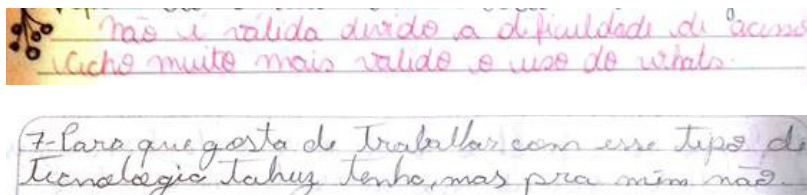 não é válida divido a dificuldade de acesso
Acho muito mais valido o uso do whats.
7-Para que gosta de Traballar com esse tipo de
tecnologia talvez tenha, mas pra mim não